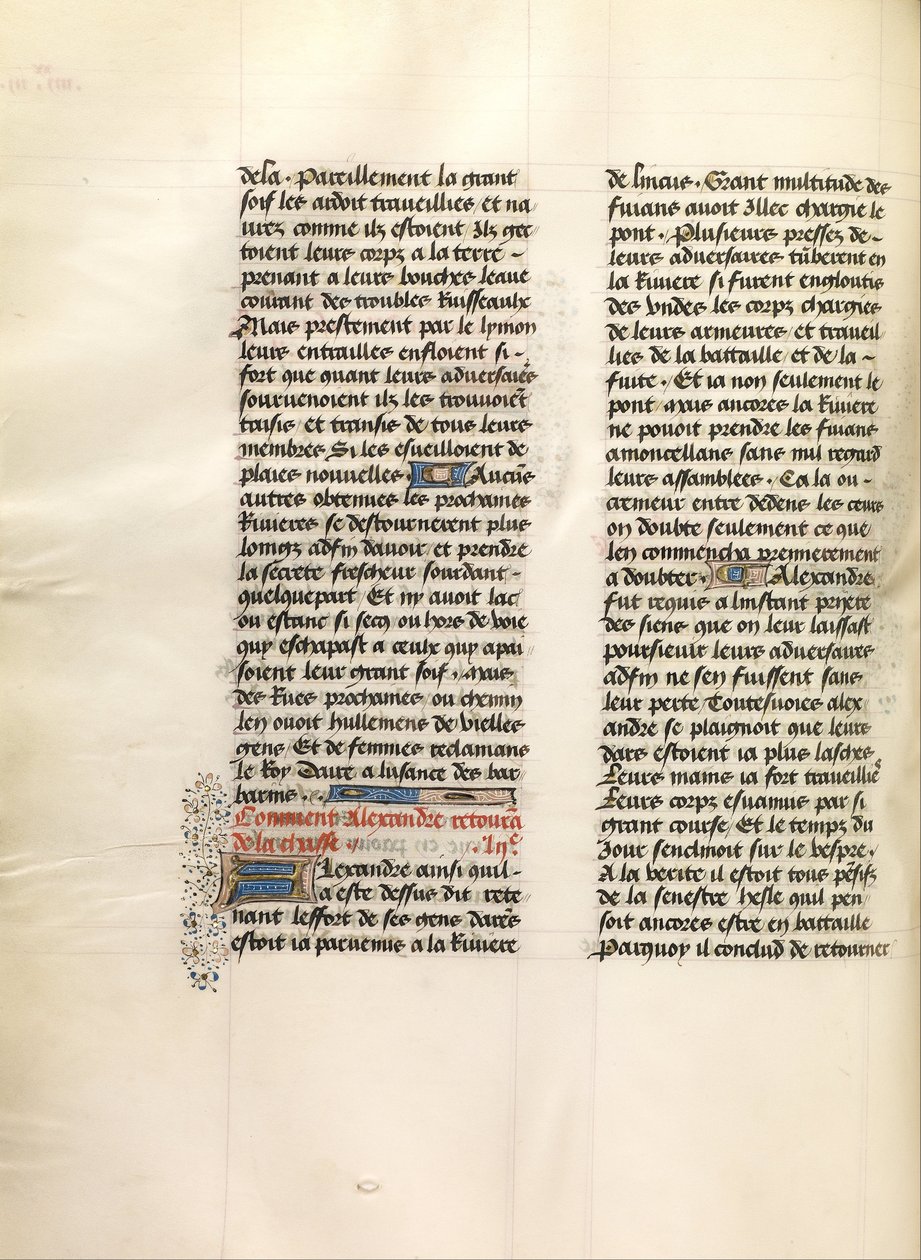 dela . Pareillement la grant
soif les ardoit traveillies / et na
vrez comme ilz estoient / Ilz get
toient leurs corpz a la terre -
prenant a leurs bouches leaue
courant des troubles Ruisseaulx
Mais prestement par le lymon
leurs entrailles enfloient si -
fort que quant leurs adversaires
sourvenoient ilz les trouvoient
transis / et transis de tous leurs
membres Si les esveilloient de
plaies nouvelles . Aucuns
autres obtenues les prochaines
Rivieres se destournerent plus
loingz adfin davoir / et prendre
la secrete frescheur sourdant -
quelquepart / Et ny avoit lac
ou estanc si secq ou hors de voie
quy eschapast a ceulx quy apai
soient leur grant soif . Mais
des Rues prochaines / ou chemin
len ouoit hullemens de vielles
gens / Et de femmes reclamans
le Roy Daire a lusance des bar
barins . .
Comment Alexandre retourna
de la chasse . . lijᵉ
Alexandre ainsi quil -
a este dessus dit rete
nant leffort de ses gens dares
estoit ia parvenus a la Riviere
de lincus . Grant multitude des
fuians avoit Illec chargie le
pont . Plusieurs pressez de -
leurs adversaires tūberent en
la Riviere si furent engloutis
des undes les corpz chargies
de leurs armeures / et traveil
lies de la battaille / et de la -
fuite . Et ia non seulement le
pont / mais ancores la Riviere
ne povoit prendre les fuians
amoncellans sans nul regard
leurs assamblees . Ca la ou -
cremeur entre dedens les ceurs
on doubte seulement ce que
len commencha premierement
a doubter . Alexandre
fut requis a linstant pryere
des siens que on leur laissast
poursievir leurs adversaires
adfin ne sen fuissent sans
leur perte / Toutesvoies alex
andre se plaignoit que leurs
dars estoient ia plus lasches
Leurs mains ia fort traveilliés
Leurs corpz esvanuis par si
grant course / Et le tempz du
Jour senclinoit sur le vespre .
A la verite il estoit tous pēsifz
de la senestre hesle quil pen
soit ancores estre en battaille
Parquoy il conclud de retourner